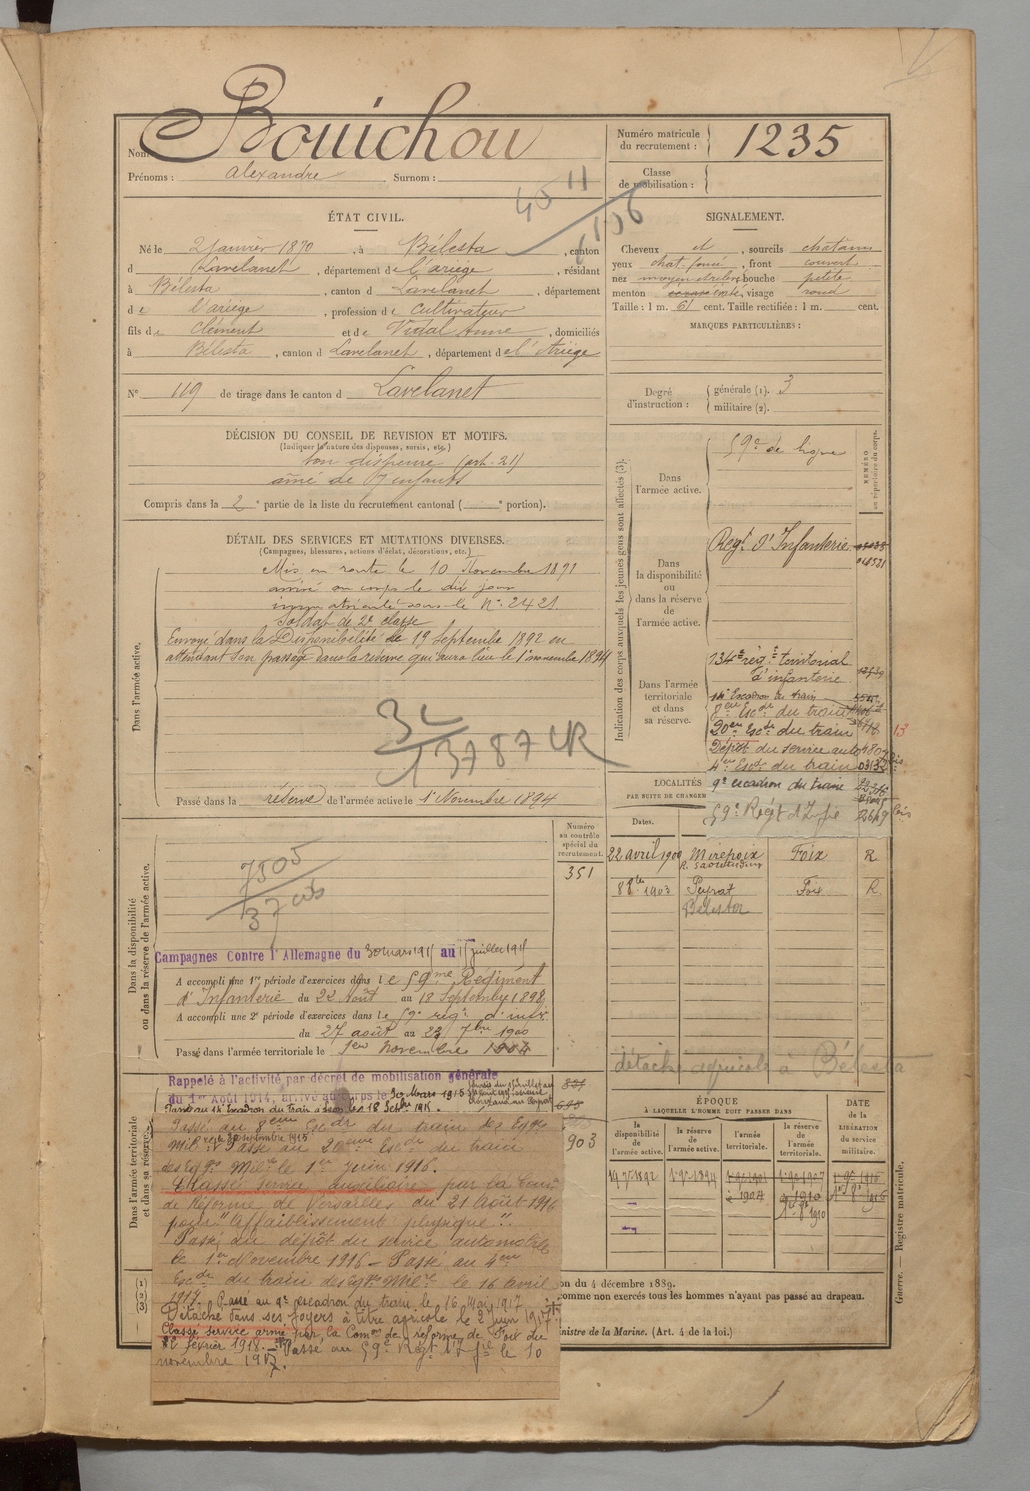 Nom Bouichou
Prénoms : Alexandre Surnom :
Numéro matricule du recrutement : 1235
Classe de mobilisation :
ÉTAT CIVIL.
Né le 2 janvier 1870, à Bélesta, canton
d Lavelanet, département de l'ariège, résidant
à Bélesta, canton d Lavelanet, département
de l'ariège, profession de cultivateur
fils de Clément et de Vidal Anne, domiciliés
à Bélesta, canton d Lavelanet, département de l'Ariège
N° 119 de tirage dans le canton d Lavelanet
SIGNALEMENT.
Cheveux et, sourcils chatains
yeux chat. foncé, front couvert
nez moyen bouche petite
menton visage rond
Taille : 1 m. 61 cent. Taille rectifiée : 1 m. cent.
MARQUES PARTICULIÈRES :
Degré d'instruction : générale (1). 3
militaire (2).
DÉCISION DU CONSEIL DE REVISION ET MOTIFS.
(Indiquer la nature des dispenses, sursis, etc.)
bon dispense (art. 21)
ainé de 7 enfants
Compris dans la 2e partie de la liste du recrutement cantonal ( e portion).
DÉTAIL DES SERVICES ET MUTATIONS DIVERSES.
(Campagnes, blessures, actions d'éclat, décorations, etc.)
Dans l'armée active.
Mis en route le 10 Novembre 1891
arrivé au corps le dit jour
immatriculé sous le N° 2421
Soldat de 2e classe
Envoyé dans la Disponibilité le 19 septembre 1892 en
attendant son passage dans la réserve qui aura lieu le 1er novembre 1894
Passé dans la réserve de l'armée active le 1er Novembre 1894
Indication des corps auxquels les jeunes gens sont affectés (3).
NUMÉRO au répertoire du corps.
Dans l'armée active.
59e de ligne
Dans la disponibilité ou dans la réserve de l'armée active.
Regt d'Infanterie
Dans l'armée territoriale et dans sa réserve.
134e rég. territorial
d'infanterie
14e Escadron du train
8eme Escon du train
20eme Escon du train
Dépôt du service auto
4eme Escon du train
9e escadron du train
59e Regt d'Infie
LOCALITÉS
PAR SUITE DE CHANGE
Dates.
22 avril 1900 Mirepoix Foix R
R. Saoutadou
8 8bre 1903 Peyrat Foix R
Bélesta
détaché agricole à Bélesta
Dans la disponibilité ou dans la réserve de l'armée active.
Numéro au contrôle spécial du recrutement.
351
7505
Campagnes Contre l'Allemagne du 30 mars 1915 au 1er juillet 1915
A accompli une 1re période d'exercices dans le 59me Régiment
d'Infanterie du 22 août au 18 Septembre 1898
A accompli une 2e période d'exercices dans le 59e régt d'inf.
du 27 août au 23 7bre 1900
Passé dans l'armée territoriale le 1er Novembre 1904
Dans l'armée territoriale et dans sa réserve.
Rappelé à l'activité par décret de mobilisation générale
du 1er Août 1914, arrivé au corps le 30 Mars 1915
903
Passé au 8eme Escon du train des Eqges
Milres le 30 septembre 1915. Passé au 20eme Escon du train
des Eqges Milres le 1er juin 1916.
Classé service auxiliaire par la Comon
de Réforme de Versailles du 21 août 1916
pour "affaiblissement physique".
Passé au dépôt du service automobile
le 1er Novembre 1916 - Passé au 4eme
Escon du train des Eqges Milres le 16 avril
1917. Passé au 9e escadron du train le 16 Mai 1917
Détaché dans ses foyers à titre agricole le 2 juin 1917
Classé service armé par la Comon de réforme de Foix du
février 1918. Passé au 59e Regt d'Infie le 10
novembre 1917.
ÉPOQUE
À LAQUELLE L'HOMME DOIT PASSER DANS
la disponibilité de l'armée active.
la réserve de l'armée active.
l'armée territoriale.
la réserve de l'armée territoriale.
DATE de la LIBÉRATION du service militaire.
on du 4 décembre 1889.
omme non exercés tous les hommes n'ayant pas passé au drapeau.
nistre de la Marine. (Art. 4 de la loi.)
Guerre. — Registre matricule.
(1)
(2)
(3)